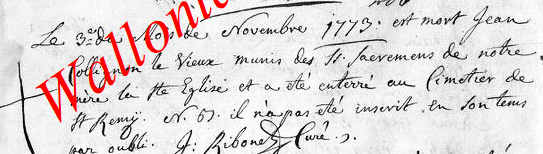 Le 3.e du Mois de Novembre 1773. est mort Jean
le Vieux munis des St. Sacremens de notre
mere la Ste Eglise et a eté enterré au Cimetier de
St Remy. N. 63. il n'a pas eté inscrit en son tems
par oubli. J: Curé.
Wallonie